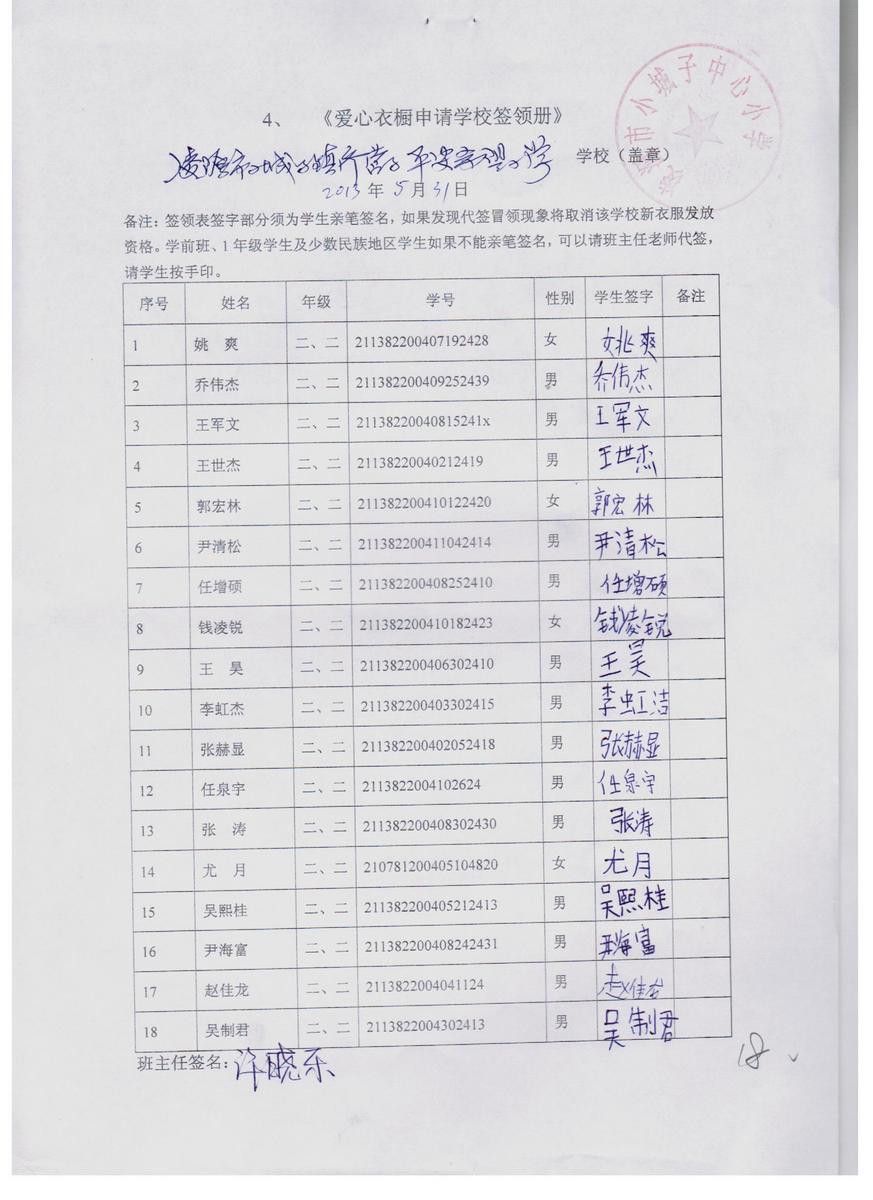 小城子中心小学
4、 《爱心衣橱申请学校签领册》
学校（盖章）
2013年5月31日
备注：签领表签字部分须为学生亲笔签名，如果发现代签冒领现象将取消该学校新衣服发放
资格。学前班、1年级学生及少数民族地区学生如果不能亲笔签名，可以请班主任老师代签，
请学生按手印。
序号 姓名 年级 学号 性别 学生签字 备注
1 姚 爽 二、二 211382200407192428 女 姚爽
2 乔伟杰 二、二 211382200409252439 男 乔伟杰
3 王军文 二、二 21138220040815241x 男 王军文
4 王世杰 二、二 21138220040212419 男 王世杰
5 郭宏林 二、二 211382200410122420 女 郭宏林
6 尹清松 二、二 211382200411042414 男 尹清松
7 任增硕 二、二 211382200408252410 男 任增硕
8 钱凌锐 二、二 211382200410182423 女 钱凌锐
9 王 昊 二、二 211382200406302410 男 王昊
10 李虹杰 二、二 211382200403302415 男 李虹洁
11 张赫显 二、二 211382200402052418 男 张赫显
12 任泉宇 二、二 2113822004102624 男 任泉宇
13 张 涛 二、二 211382200408302430 男 张涛
14 尤 月 二、二 210781200405104820 女 尤月
15 吴熙桂 二、二 211382200405212413 男 吴熙桂
16 尹海富 二、二 211382200408242431 男 尹海富
17 赵佳龙 二、二 2113822004041124 男 赵佳龙
18 吴制君 二、二 2113822004302413 男 吴制君
班主任签名：许晓乐
18